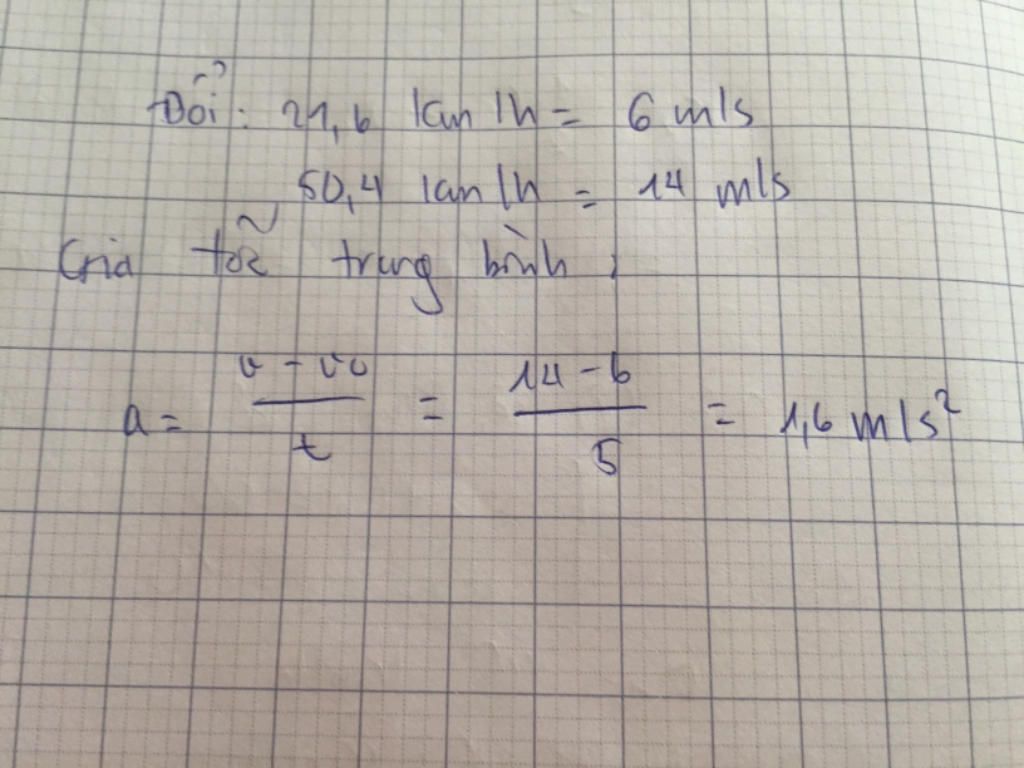 Đổi: 21,6 km/h = 6 m/s
50,4 km/h = 14 m/s
Gia tốc trung bình:
a = (v - v0)/t = (14 - 6)/5 = 1,6 m/s²